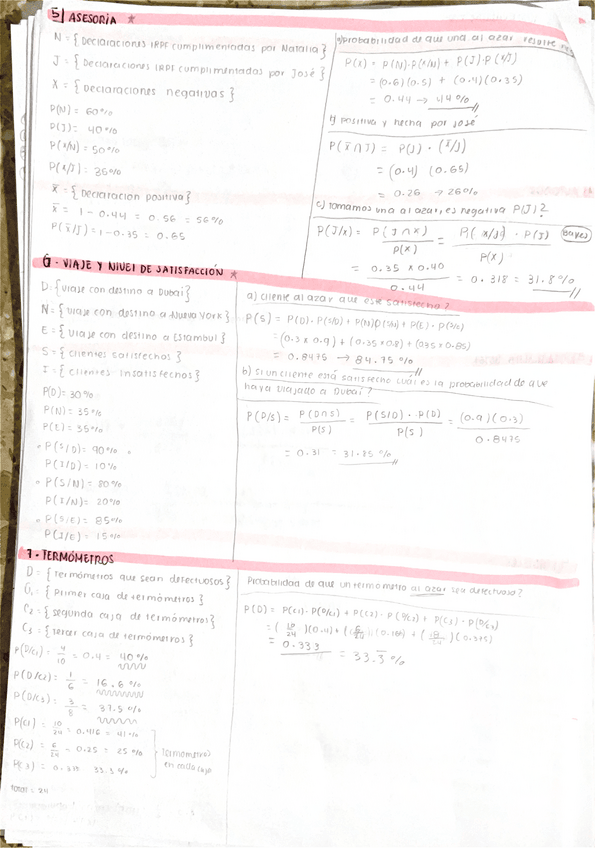 5| ASESORÍA ★
N = { Declaraciones IRPF cumplimentadas por Natalia }
J = { Declaraciones IRPF cumplimentadas por José }
X = { Declaraciones negativas }
P(N) = 60%
P(J) = 40%
P(X/N) = 50%
P(X/J) = 35%
X̄ = { Declaracion positiva }
X̄ = 1 - 0.44 = 0.56 = 56%
P(X̄/J) = 1 - 0.35 = 0.65
a) probabilidad de que una al azar resulte
P(X) = P(N)·P(X/N) + P(J)·P(X/J)
= (0.6)(0.5) + (0.4)(0.35)
= 0.44 → 44%
b) positiva y hecha por José
P(X̄∩J) = P(J)·(X̄/J)
= (0.4) (0.65)
= 0.26 → 26%
c) tomamos una al azar, es negativa P(J)?
P(J/X) = P(J∩X) / P(X) = P(X/J)·P(J) / P(X) Bayes
= 0.35 x 0.40 / 0.44 = 0.318 = 31.8%
6 - VIAJE Y NIVEL DE SATISFACCIÓN ★
D = { Viaje con destino a Dubai }
N = { Viaje con destino a Nueva York }
E = { Viaje con destino a Estambul }
S = { clientes satisfechos }
I = { clientes insatisfechos }
P(D) = 30%
P(N) = 35%
P(E) = 35%
P(S/D) = 90%
P(I/D) = 10%
P(S/N) = 80%
P(I/N) = 20%
P(S/E) = 85%
P(I/E) = 15%
a) cliente al azar que esté satisfecho?
P(S) = P(D)·P(S/D) + P(N)P(S/N) + P(E)·P(S/E)
= (0.3 x 0.9) + (0.35 x 0.8) + (0.35 x 0.85)
= 0.8475 → 84.75%
b) Si un cliente está satisfecho cuál es la probabilidad de que
haya viajado a Dubai?
P(D/S) = P(D∩S) / P(S) = P(S/D)·P(D) / P(S) = (0.9)(0.3) / 0.8475
= 0.31 = 31.85%
7 - TERMÓMETROS
D = { Termómetros que sean defectuosos }
C₁ = { Primer caja de termómetros }
C₂ = { segunda caja de termómetros }
C₃ = { tercer caja de termómetros }
P(D/C₁) = 4/10 = 0.4 = 40%
P(D/C₂) = 1/6 = 16.6%
P(D/C₃) = 3/8 = 37.5%
P(C1) = 10/24 = 0.416 = 41%
P(C2) = 6/24 = 0.25 = 25%
P(C3) = 33.3%
Termómetros
en cada caja
Total = 24
Probabilidad de que un termómetro al azar sea defectuoso?
P(D) = P(C1)·P(D/C1) + P(C2)·P(D/C2) + P(C3)·P(D/C3)
= (10/24)(0.4) + (6/24)(0.166) + (
= 0.333 = 33.3̄%